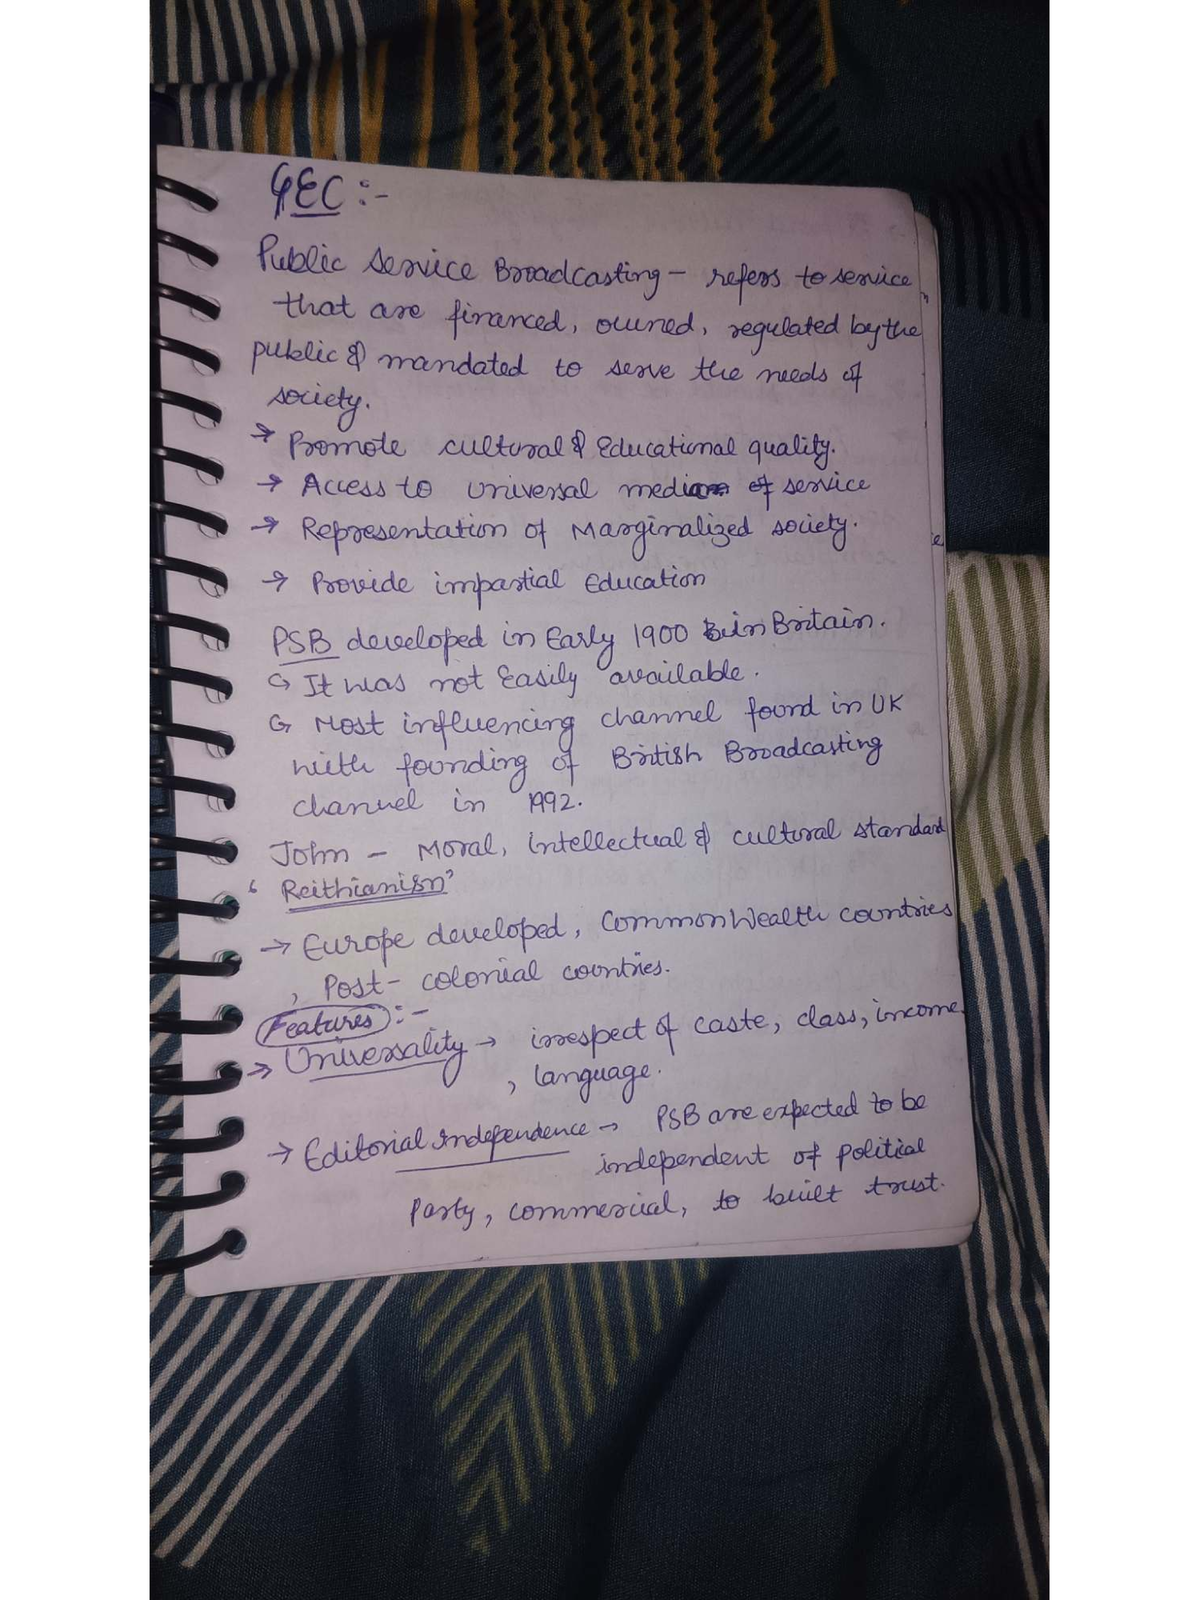 GEC :-
Public Service Broadcasting - refers to service
that are financed, owned, regulated by the
public & mandated to serve the needs of
society.
→ Promote cultural & Educational quality.
→ Access to Universal medium of service
→ Representation of Marginalized society.
→ Provide impartial Education
PSB developed in Early 1900 in Britain.
↳ It was not Easily available.
↳ Most influencing channel found in UK
with founding of British Broadcasting
channel in 1992.
John - Moral, intellectual & cultural standard
'Reithianism'
→ Europe developed, CommonWealth countries
, Post-colonial countries.
Features :-
→ Universality → irrespect of caste, class, income
, language.
→ Editorial Independence → PSB are expected to be
independent of political
Party, commercial, to built trust.